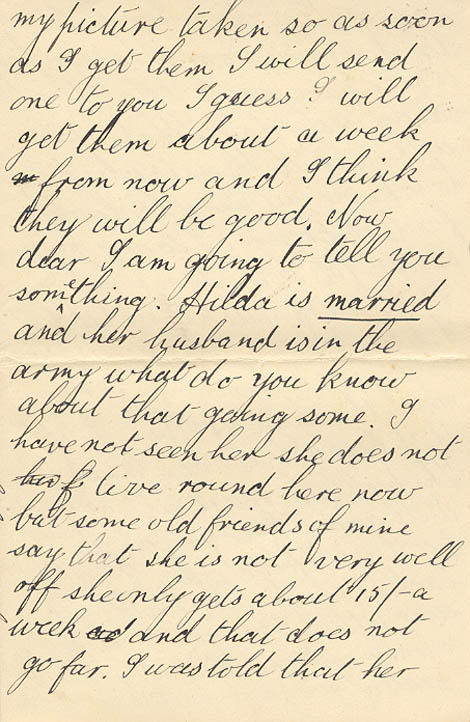 my picture taken so as soon
as I get them I will send
one to you I guess I will
get them about a week
from now and I think
they will be good. Now
dear I am going to tell you
something. Hilda is married
and her husband is in the
army what do you know
about that going some. I
have not seen her she does not
live round here now
but some old friends of mine
say that she is not very well
off she only gets about 15/- a
week and that does not
go far. I was told that her